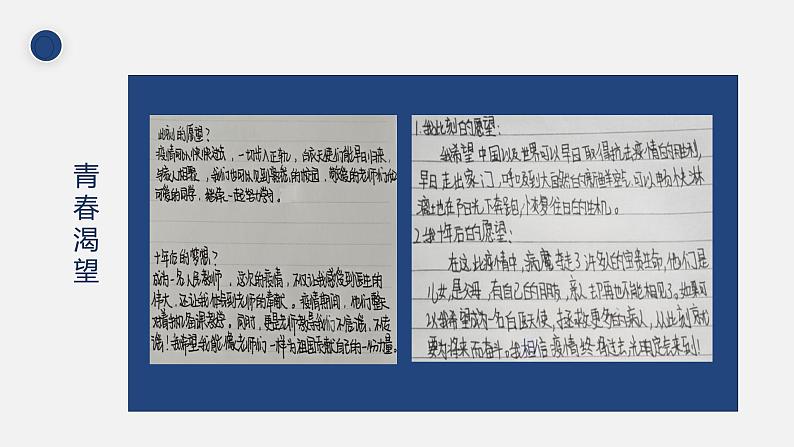 青春渴望
此刻的愿望？
疫情可以快快过去，一切步入正轨，白衣天使们能早日归来，
与家人相聚，我们也可以见到美丽的校园，敬爱的老师们和
可爱的同学，继续一起学习。
十年后的梦想？
成为一名人民教师，这次的疫情，不仅让我感受到医生的
伟大，还让我体会到老师的奉献。疫情期间，他们整天
对着手机备课教学。同时，更是老师教导我们不信谣，不传
谣！我希望我能像老师们一样为祖国贡献自己的一份力量。
1.我此刻的愿望：
我希望中国以及世界可以早日取得抗击疫情的胜利，
早日走出家门，呼吸到大自然的新鲜空气，可以畅快淋
漓地在阳光下奔跑，恢复往日的生机。
2.我十年后的愿望：
在这次疫情中，病魔夺走了许多人的宝贵生命，他们是
儿女，是父母，有自己的朋友，亲人却再也不能相见了。如果可
以我希望成为一名白衣天使，去拯救更多的病人，从此刻
要为将来而奋斗。我相信疫情终将过去，光明定会来到！